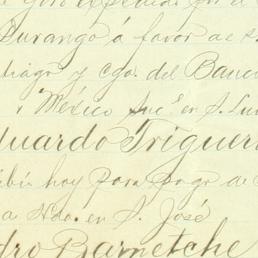 Durango á favor de
y cgo. del Banco
México Suc.ᵉ en S. Lui
duardo Triguer
hoy para pago de
Hda. en S. José
dro Barnetche